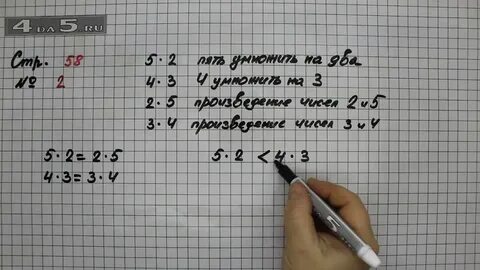 4DA5.RU
Стр. 58
№ 2
5·2 пять умножить на два
4·3 4 умножить на 3
2·5 произведение чисел 2 и 5
3·4 произведение чисел 3 и 4
5·2=2·5
4·3=3·4
5·2 < 4·3